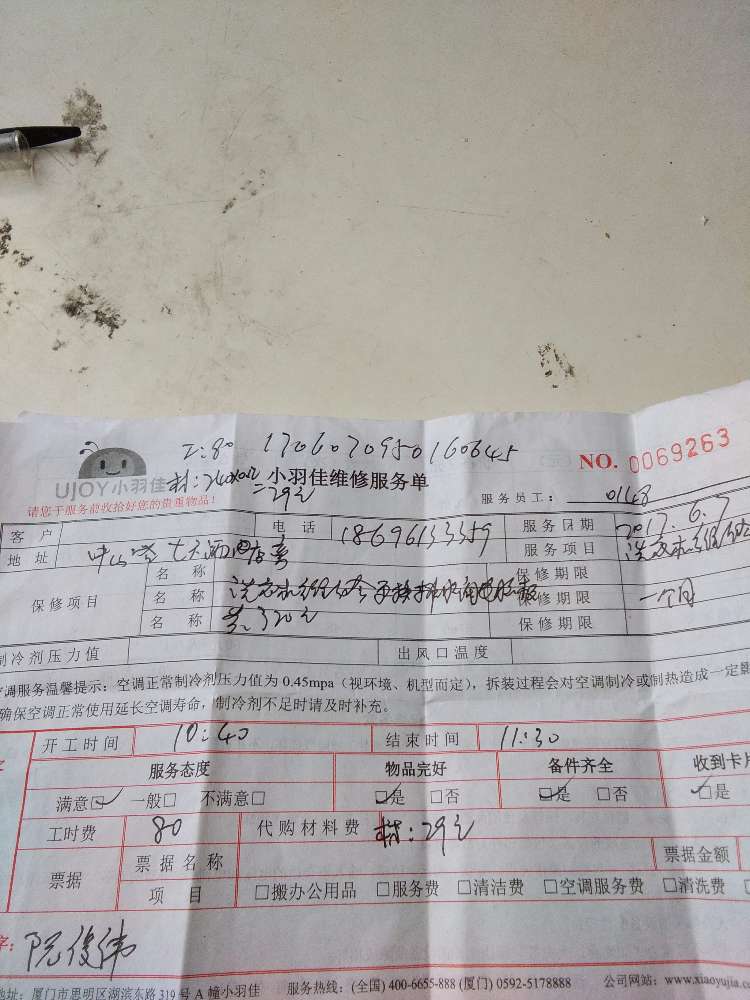 工:80 1706070950160645
UJOY小羽佳 小羽佳维修服务单 NO. 0069263
=29元
请您于服务前收拾好您的贵重物品!
服务员工: 0148
客 户 电 话 18696133359 服务日期 2017.6.7
地 址 七天酒店 服务项目 洗衣机维修
保修项目 名 称 保修期限
名 称 洗衣机维修 更换排水阀电脑板 保修期限 一个月
名 称 共:320元 保修期限
制冷剂压力值 出风口温度
空调服务温馨提示:空调正常制冷剂压力值为 0.45mpa(视环境、机型而定),拆装过程会对空调制冷或制热造成一定
确保空调正常使用延长空调寿命,制冷剂不足时请及时补充。
开工时间 10:40 结束时间 11:30
服务态度 物品完好 备件齐全 收到卡片
满意☑ 一般□ 不满意□ ☑是 □否 ☑是 □否 ☑是
工时费 80 代购材料费 材:29元
票据 票据名称 票据金额
项 目 □搬办公用品 □服务费 □清洁费 □空调服务费 □清洗费
字: 阮俊伟
地址: 厦门市思明区湖滨东路 319 号 A 幢小羽佳 服务热线:(全国) 400-6655-888 (厦门) 0592-5178888 公司网站:www.xiaoyujia.c